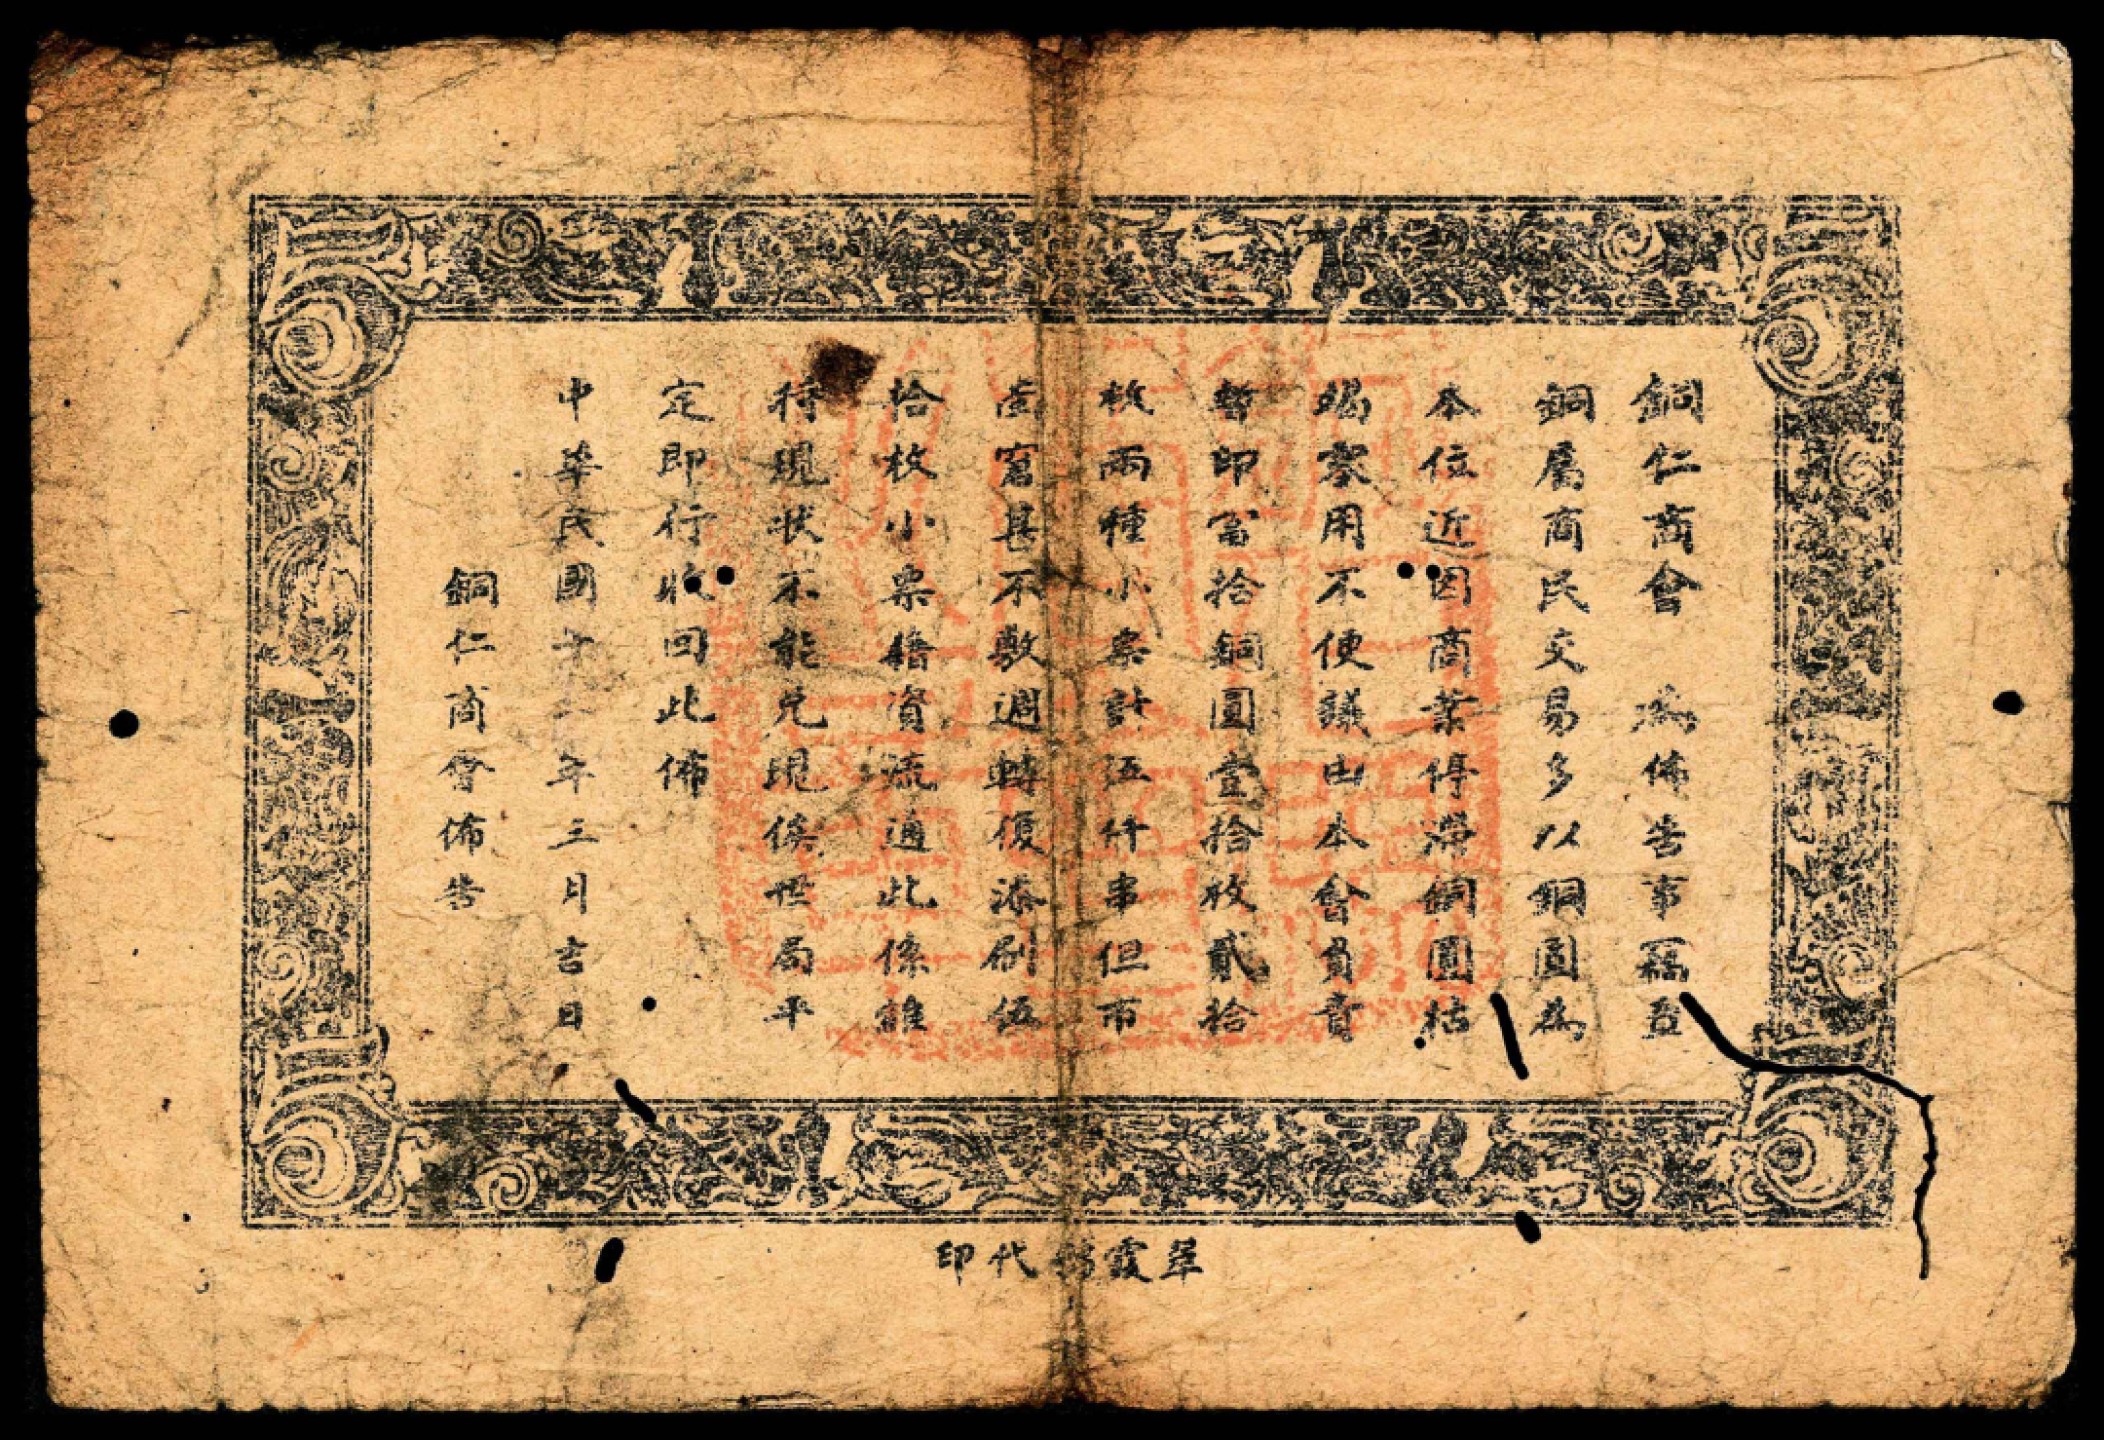 銅仁商會 為佈告事竊查
銅屬商民交易多以銅圓為
本位近因商業停滯銅圓枯
竭零用不便議由本會負責
暫印當拾銅圓壹拾枚貳拾
枚兩種小票計伍仟串但市
面窘甚不敷週轉復添刷伍
拾枚小票藉資流通此係維
持現狀不能兌現俟世局平
定即行收回此佈
中華民國十 年三月吉日
銅仁商會佈告
霞 代印